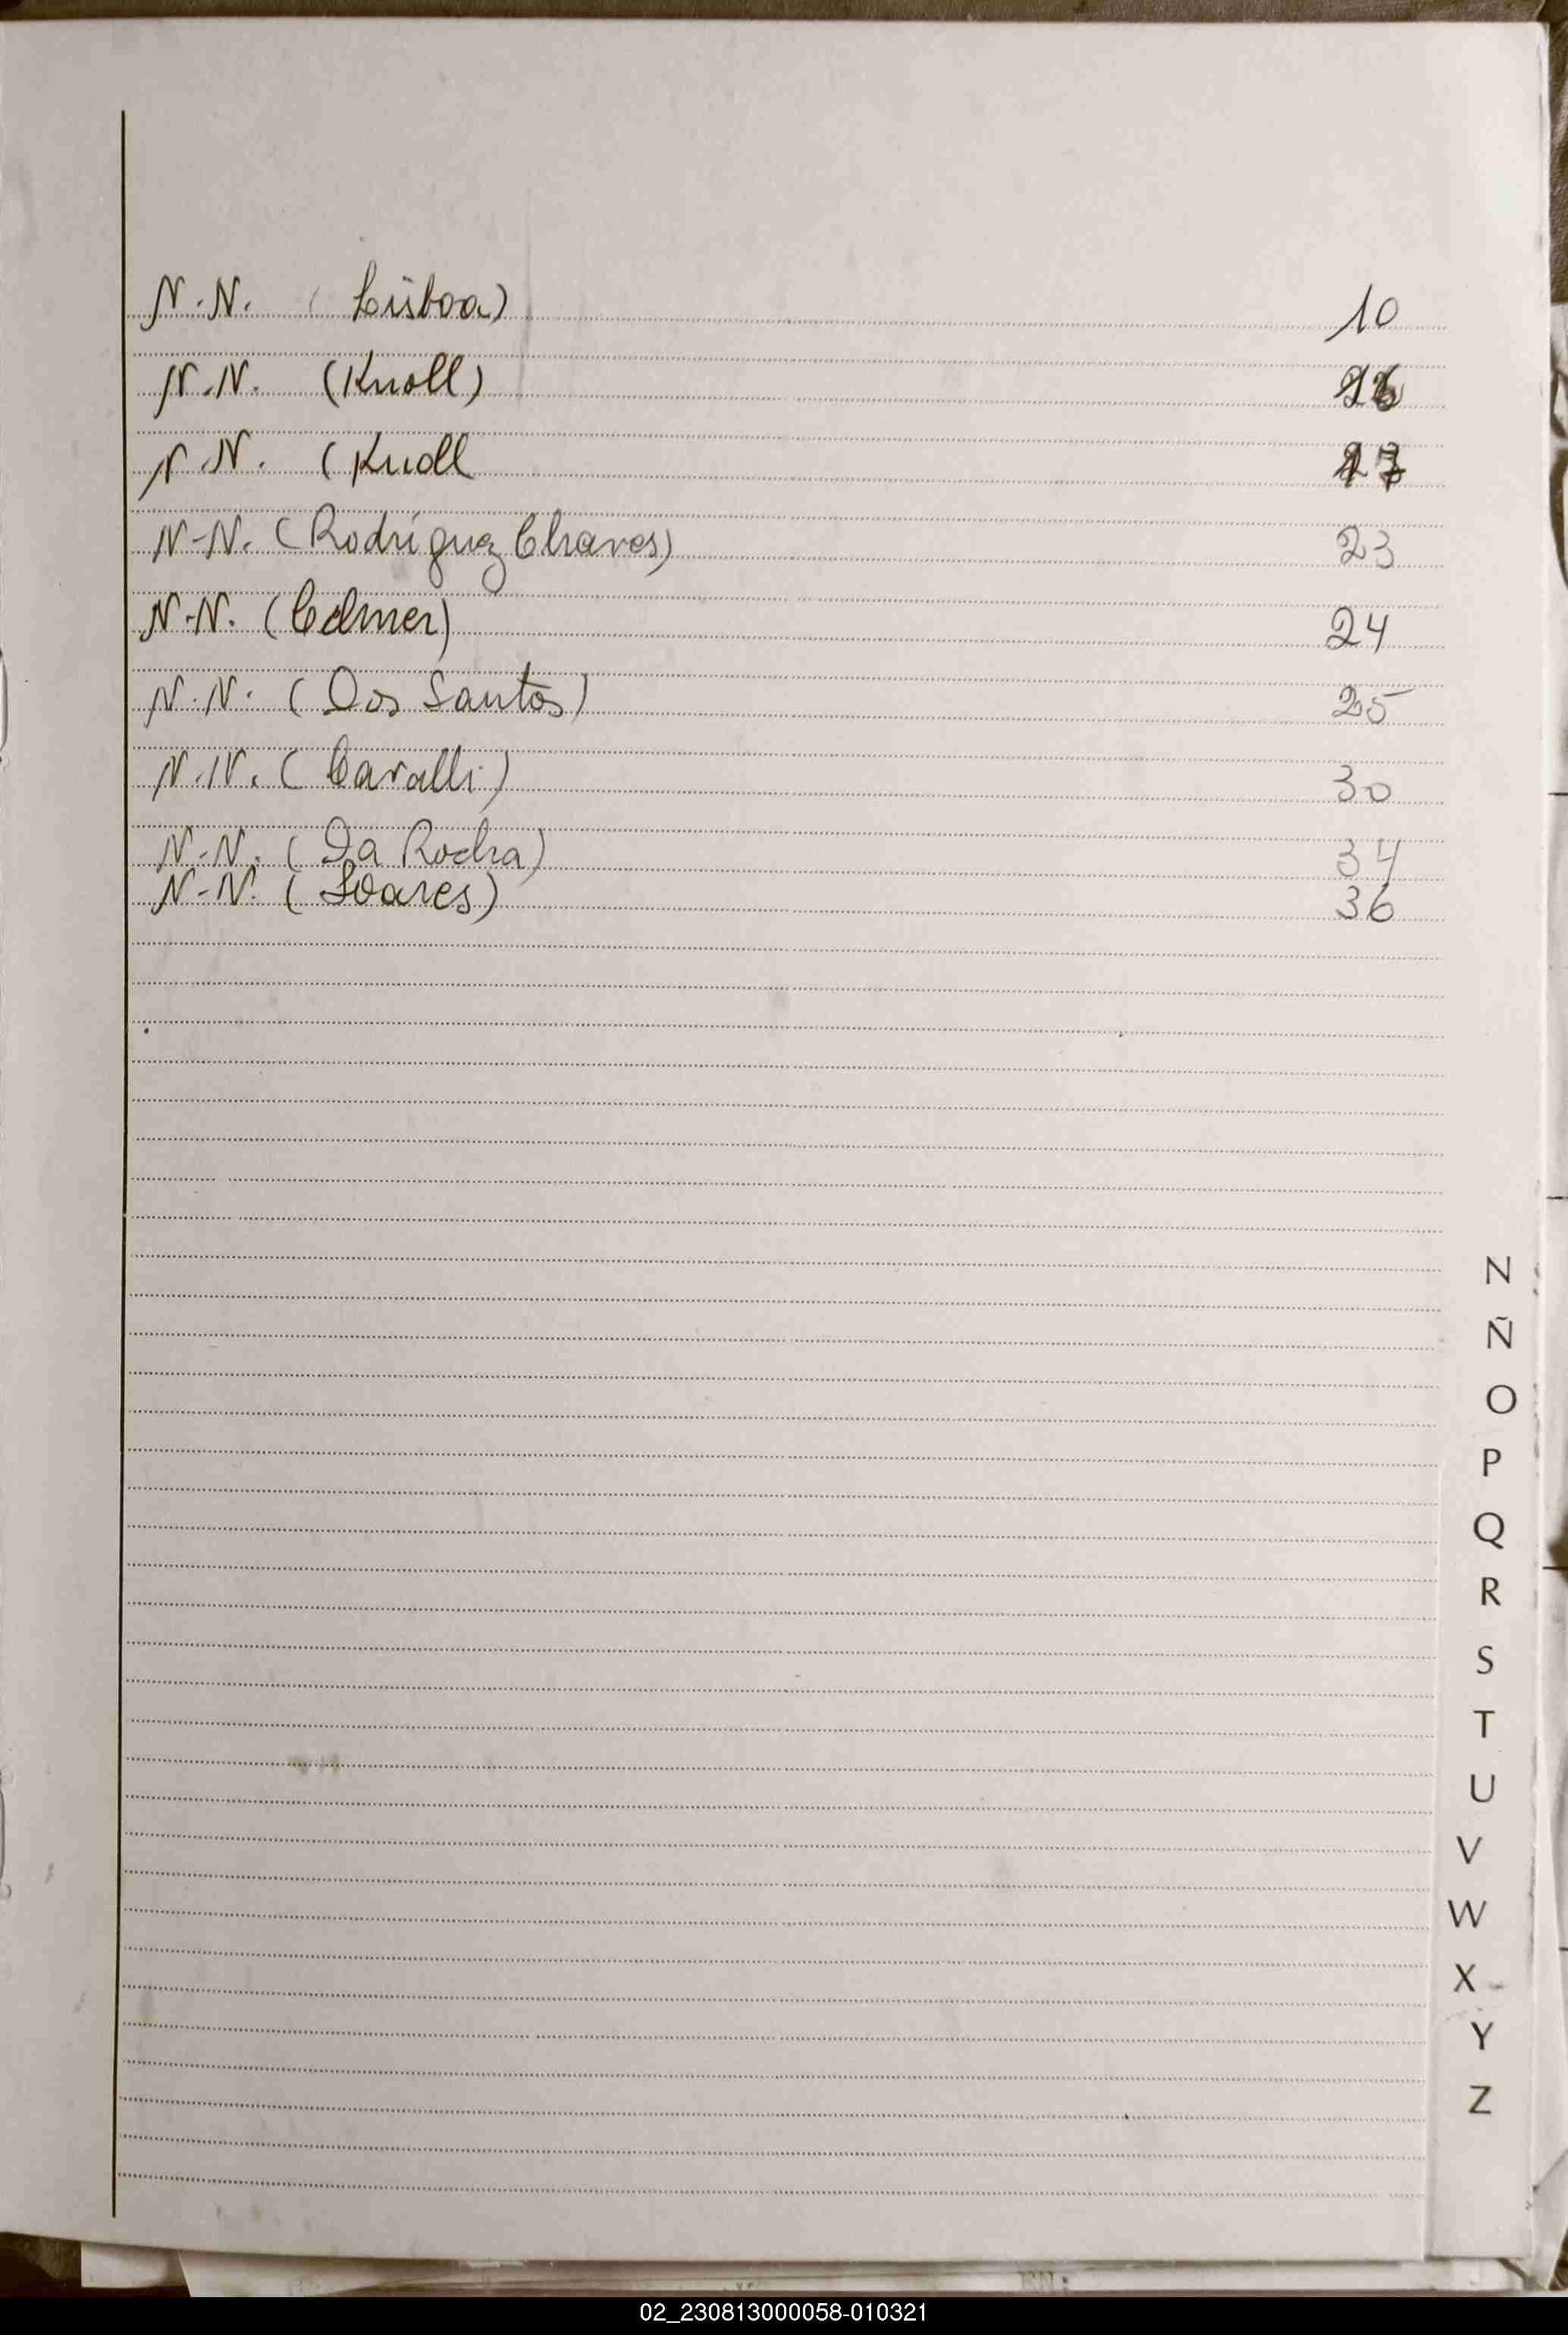 N.N. (Lisboa) 10
N.N. (Knoll)
N.N. (Knoll
N-N. (Rodríguez Chaves) 23
N-N. (Colmer) 24
N.N. (Dos Santos) 25
N.N. (Cavalli) 30
N-N. (Da Rocha) 34
N-N. (Soares) 36
N
Ñ
O
P
Q
R
S
T
U
V
W
X
Y
Z
02_230813000058-010321